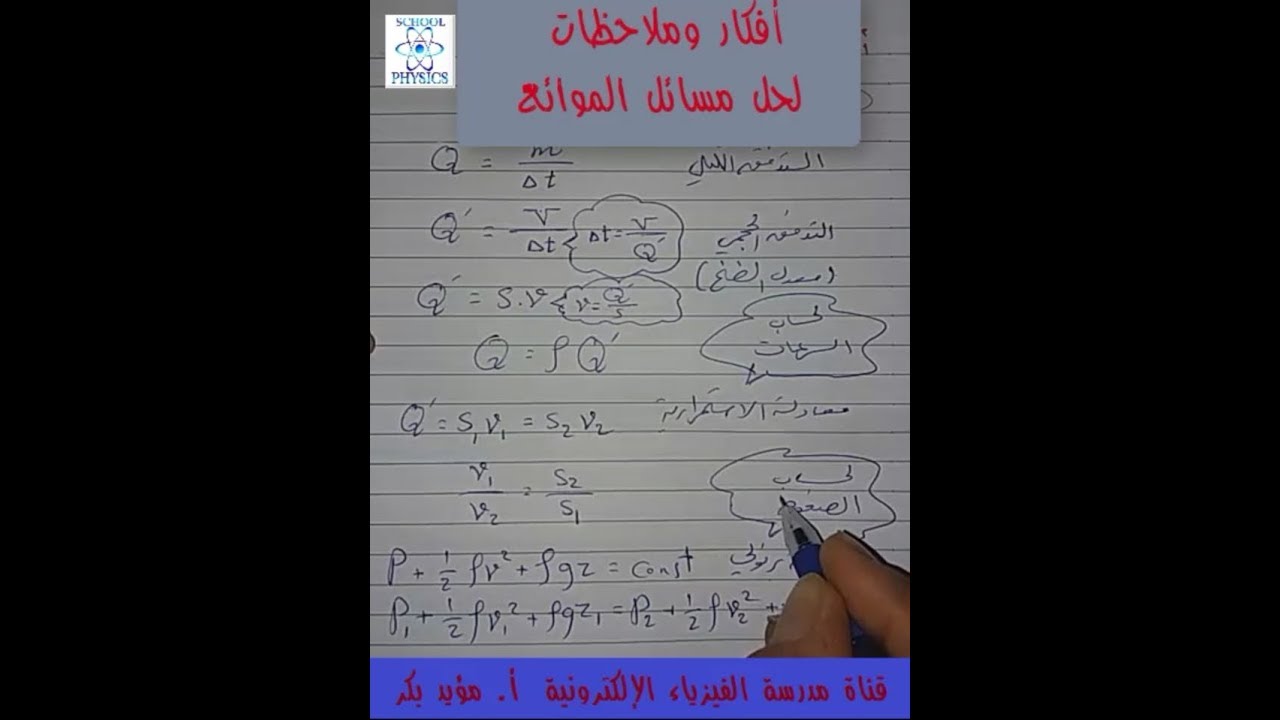 SCHOOL
PHYSICS
أفكار وملاحظات
لحل مسائل الموائع
Q = m / Δt التدفق الكتلي
Q' = V / Δt Δt = V / Q' التدفق الحجمي
(معدل الضخ)
Q' = S.v v = Q' / S
لحساب
السرعات
Q = ρ Q'
Q' = S₁v₁ = S₂v₂ معادلة الاستمرارية
v₁ / v₂ = S₂ / S₁
لحساب
P + 1/2 ρv² + ρgz = const برنولي
P₁ + 1/2 ρv₁² + ρgz₁ = P₂ + 1/2 ρv₂² +
قناة مدرسة الفيزياء الإلكترونية أ. مؤيد بكر